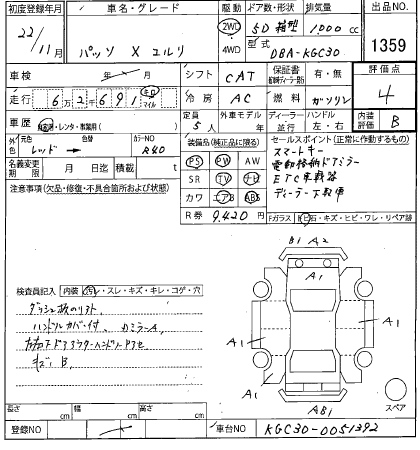 初度登録年月 車名・グレード 駆動 ドア数・形状 排気量 出品NO
22/11月 パッソ X ユルリ 2WD 4WD 5D 箱型 1000cc 1359
型式 DBA-KGC30
車検 年 月 シフト CAT 保証書 有・無 評価点 4
走行 62691 キロ マイル 冷房 AC 燃料 ガソリン
車歴 自家用・レンタ・事業用( ) 定員 5人 外車モデル 年 ディーラー 並行 ハンドル 左・右 内装評価 B
外色 元色 レッド → カラーNO R40 装備品(純正品に限る) セールスポイント(正常に動作するもの)
名義変更期限 月 日 積載 t PS PW AW スマートキー
電動格納ドアミラー
注意事項(欠品・修復・不具合箇所および状態) SR TV ナビ ETC車載器
カワ エアB ABS ディーラー下取車
R券 9,420円 Fガラス 飛石・キズ・ヒビ・ワレ・リペア跡
B1 A2
A1
検査員記入 内装 汚レ・スレ・キズ・キレ・コゲ・穴
ダッシュ板のリフト
ハンドルカバー付. カミラーA
A1 A1
キズ B
A1 A1
AB1 スペア
長さ cm 幅 cm 高さ cm
登録NO 車台NO KGC30-0051392